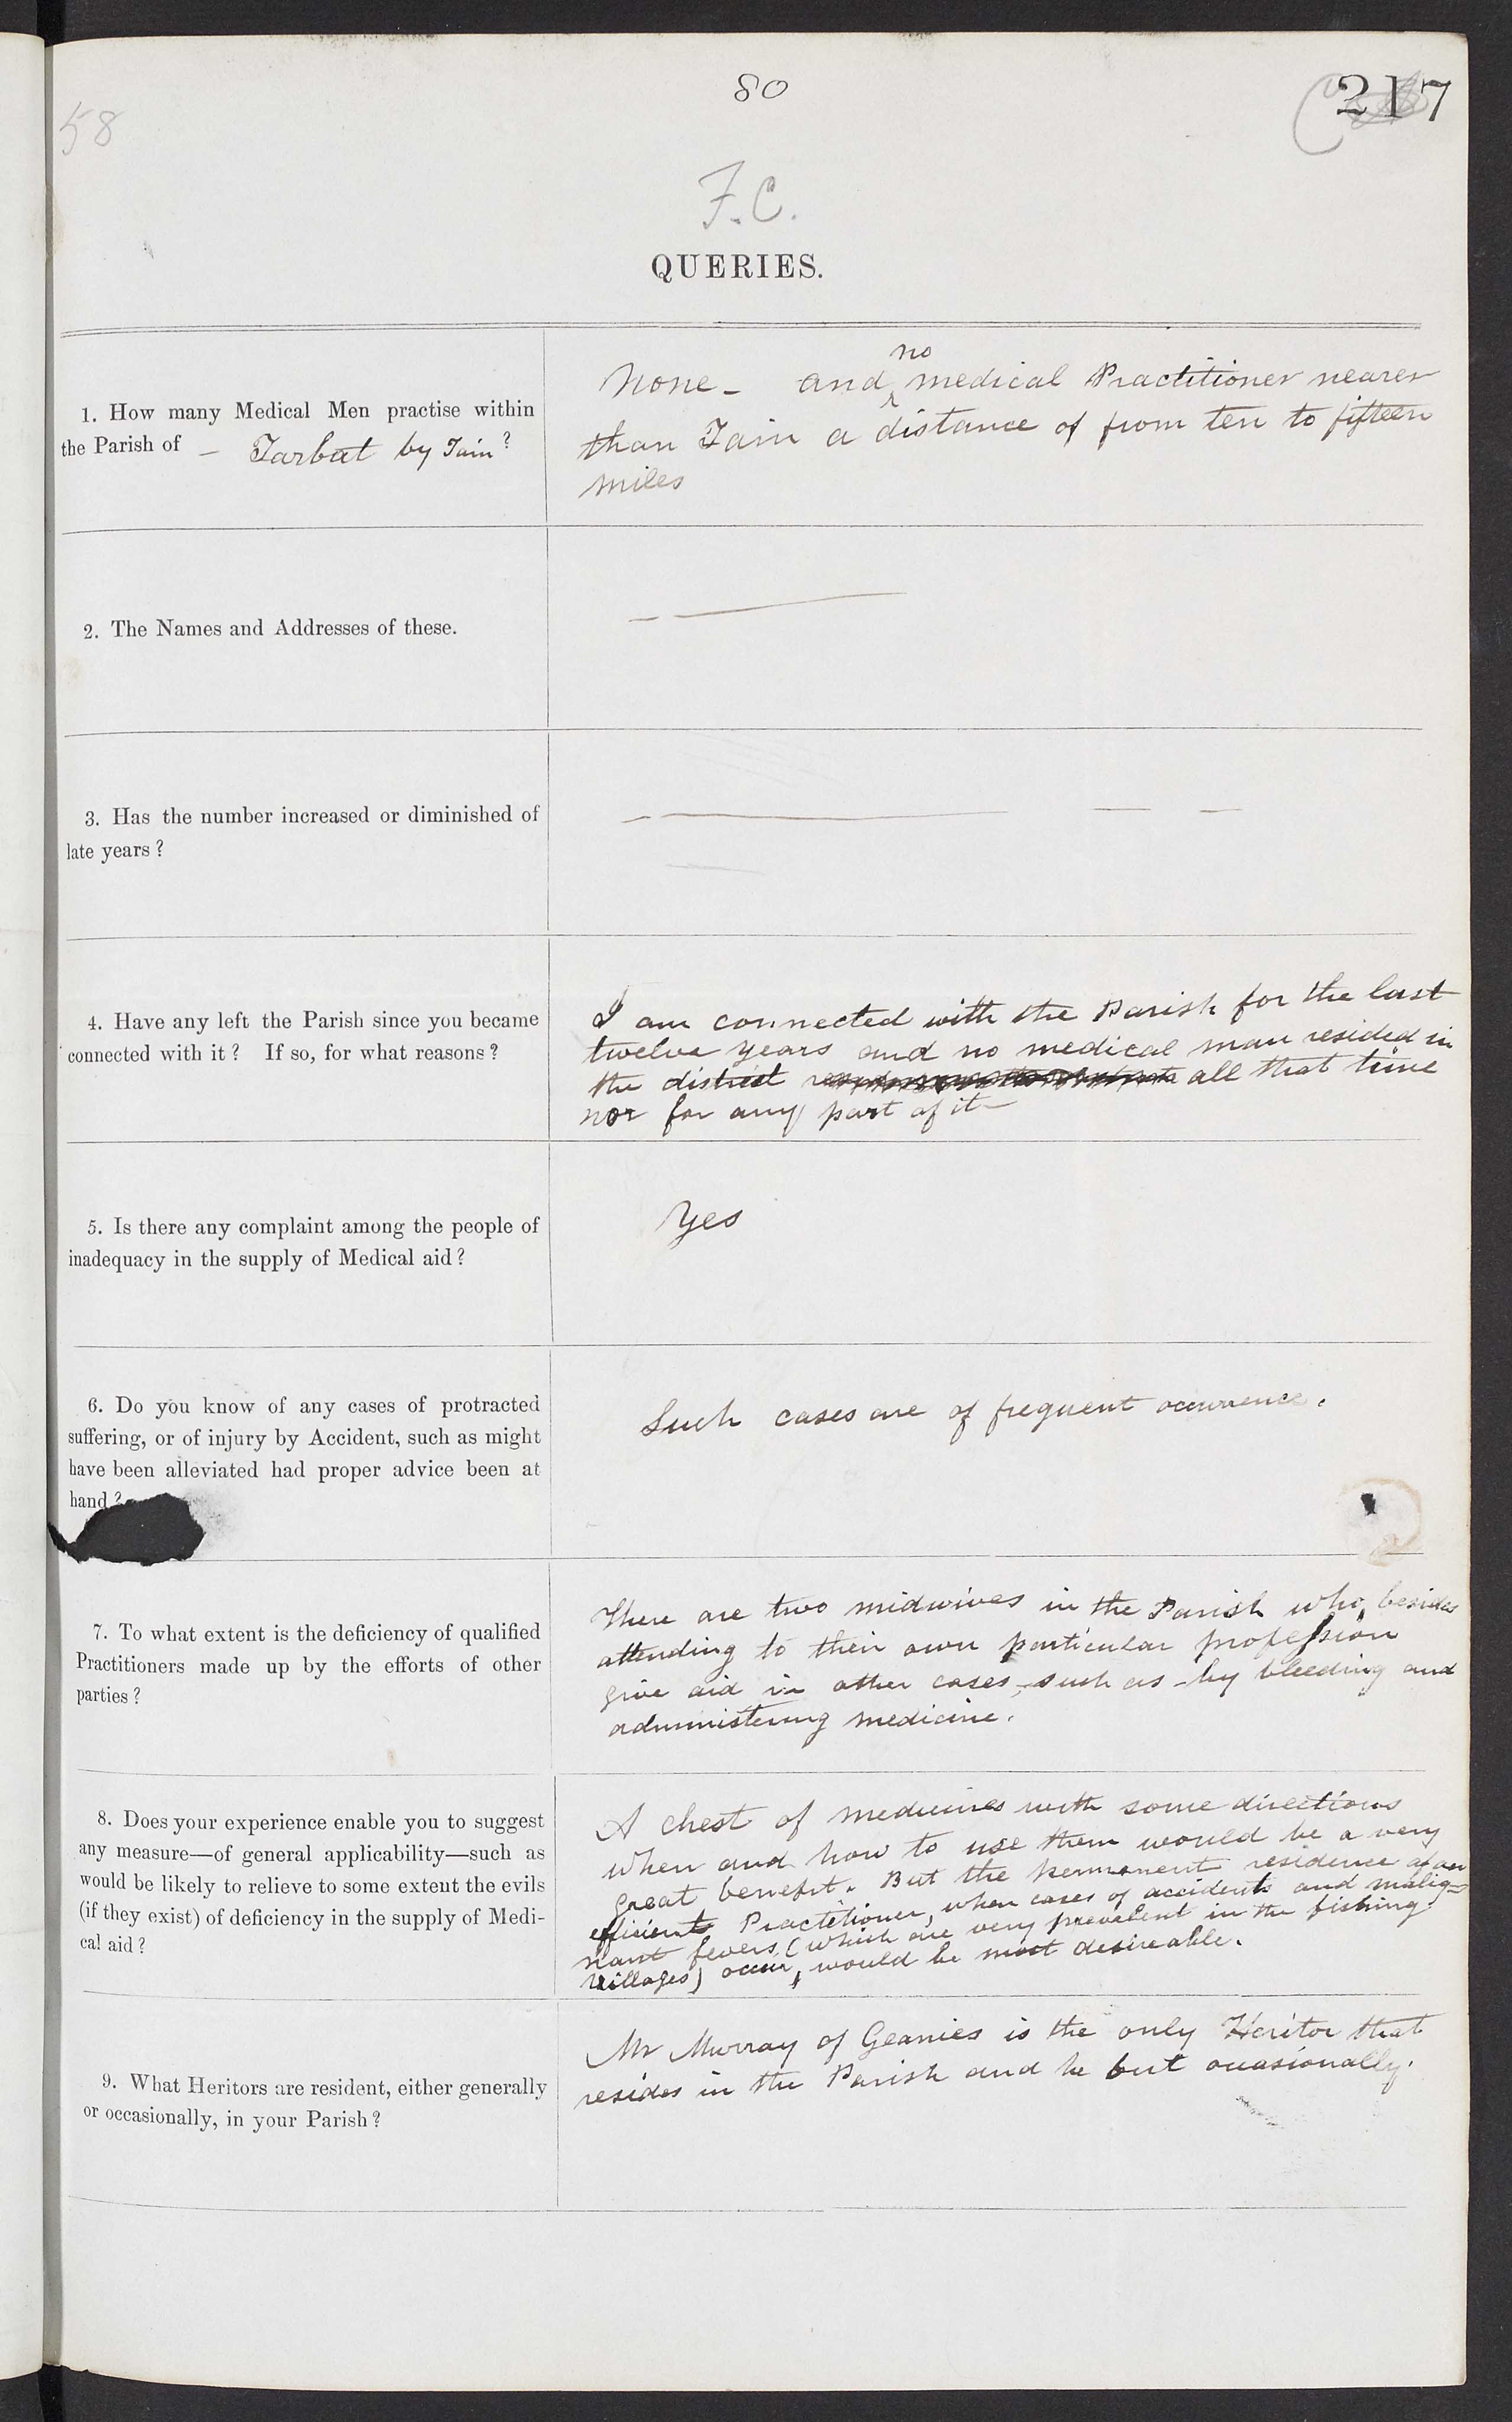 80
217
58
F.C.
QUERIES.
1. How many Medical Men practise within
the Parish of – Tarbat by Tain?
no
None – and medical Practitioner nearer
than Tain a distance of from ten to fifteen
miles
2. The Names and Addresses of these.
3. Has the number increased or diminished of
late years?
4. Have any left the Parish since you became
connected with it? If so, for what reasons?
I am connected with the Parish for the last
twelve years and no medical man resided in
the district all that time
nor for any part of it –
5. Is there any complaint among the people of
inadequacy in the supply of Medical aid?
Yes
6. Do you know of any cases of protracted
suffering, or of injury by Accident, such as might
have been alleviated had proper advice been at
hand?
Such cases are of frequent occurrence.
7. To what extent is the deficiency of qualified
Practitioners made up by the efforts of other
parties?
There are two midwives in the Parish who, besides
attending to their own particular profession
give aid in other cases, such as – by bleeding and
administering medicine.
8. Does your experience enable you to suggest
any measure—of general applicability—such as
would be likely to relieve to some extent the evils
(if they exist) of deficiency in the supply of Medi-
cal aid?
A chest of medicines with some directions
when and how to use them would be a very
great benefit. But the permanent residence of an
efficient Practetioner, when cases of accidents and malig=
nant fevers (which are very prevalent in the fishing
villages) occur, would be most desireable.
9. What Heritors are resident, either generally
or occasionally, in your Parish?
Mr Murray of Geanies is the only Heritor that
resides in the Parish and he but occasionally.